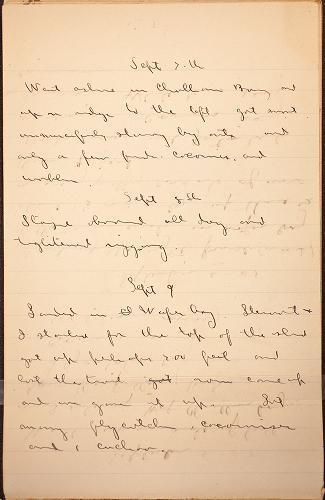 Sept 7th
Went ashore in Chatham Bay and
up on ridge to the left got most
unmercifully stung by ants and
only a few finch. cocornis and
warbler.
Sept 8th
Stayed aboard all day and
tightened rigging
Sept 9
Landed in Wafer Bay. Stewart &
I started for the top of the island
got up perhaps 200 feet and
lost the trail rain came up
and we gave it up. Got
many flycatcher, cocornis
and 1 cuckoo.